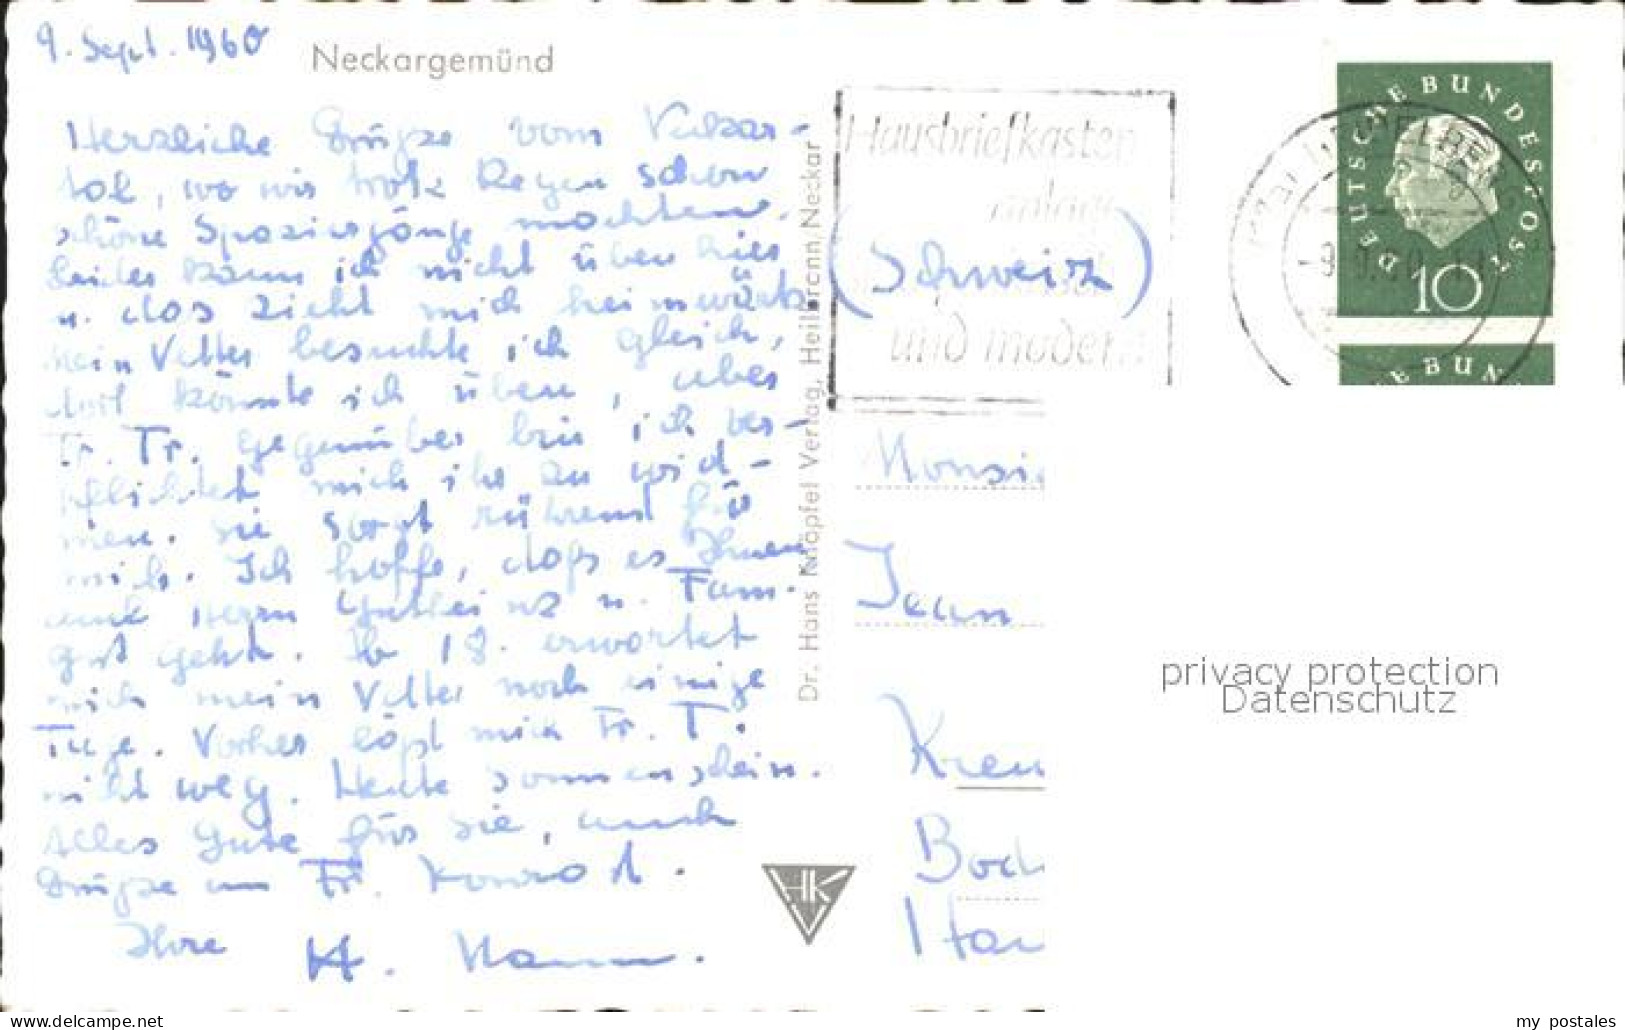 9. Sept. 1960
Neckargemünd
Herzliche Grüße vom Neckar-
tal, wo wir trotz Regen schon
schöne Spaziergänge machten.
Leider kann ich nicht üben hier
u. das zieht mich heimwärts.
Mein Vetter besuchte ich gleich,
dort könnte ich üben, aber
Fr. Tr. gegenüber bin ich ver-
pflichtet mich ihr zu wid-
men. Sie sorgt rührend für
mich. Ich hoffe, dass es Ihnen
und Herrn u. Fam.
gut geht. 18. erwartet
mich mein Vetter noch einige
Tage. Vorher läßt mich Fr. T.
nicht weg. Heute Sonnenschein.
Alles Gute für Sie, auch
Grüße an Fr. Konrad.
Ihre H. Hamm.
Dr. Hans Knöpfel Verlag, Heilbronn/Neckar
HKV
Hausbriefkasten
anlage
(Schweiz)
und modern
DEUTSCHE BUNDESPOST
10
E BUN
Monsi
Jean
Kreu
Boch
privacy protection
Datenschutz
my postales